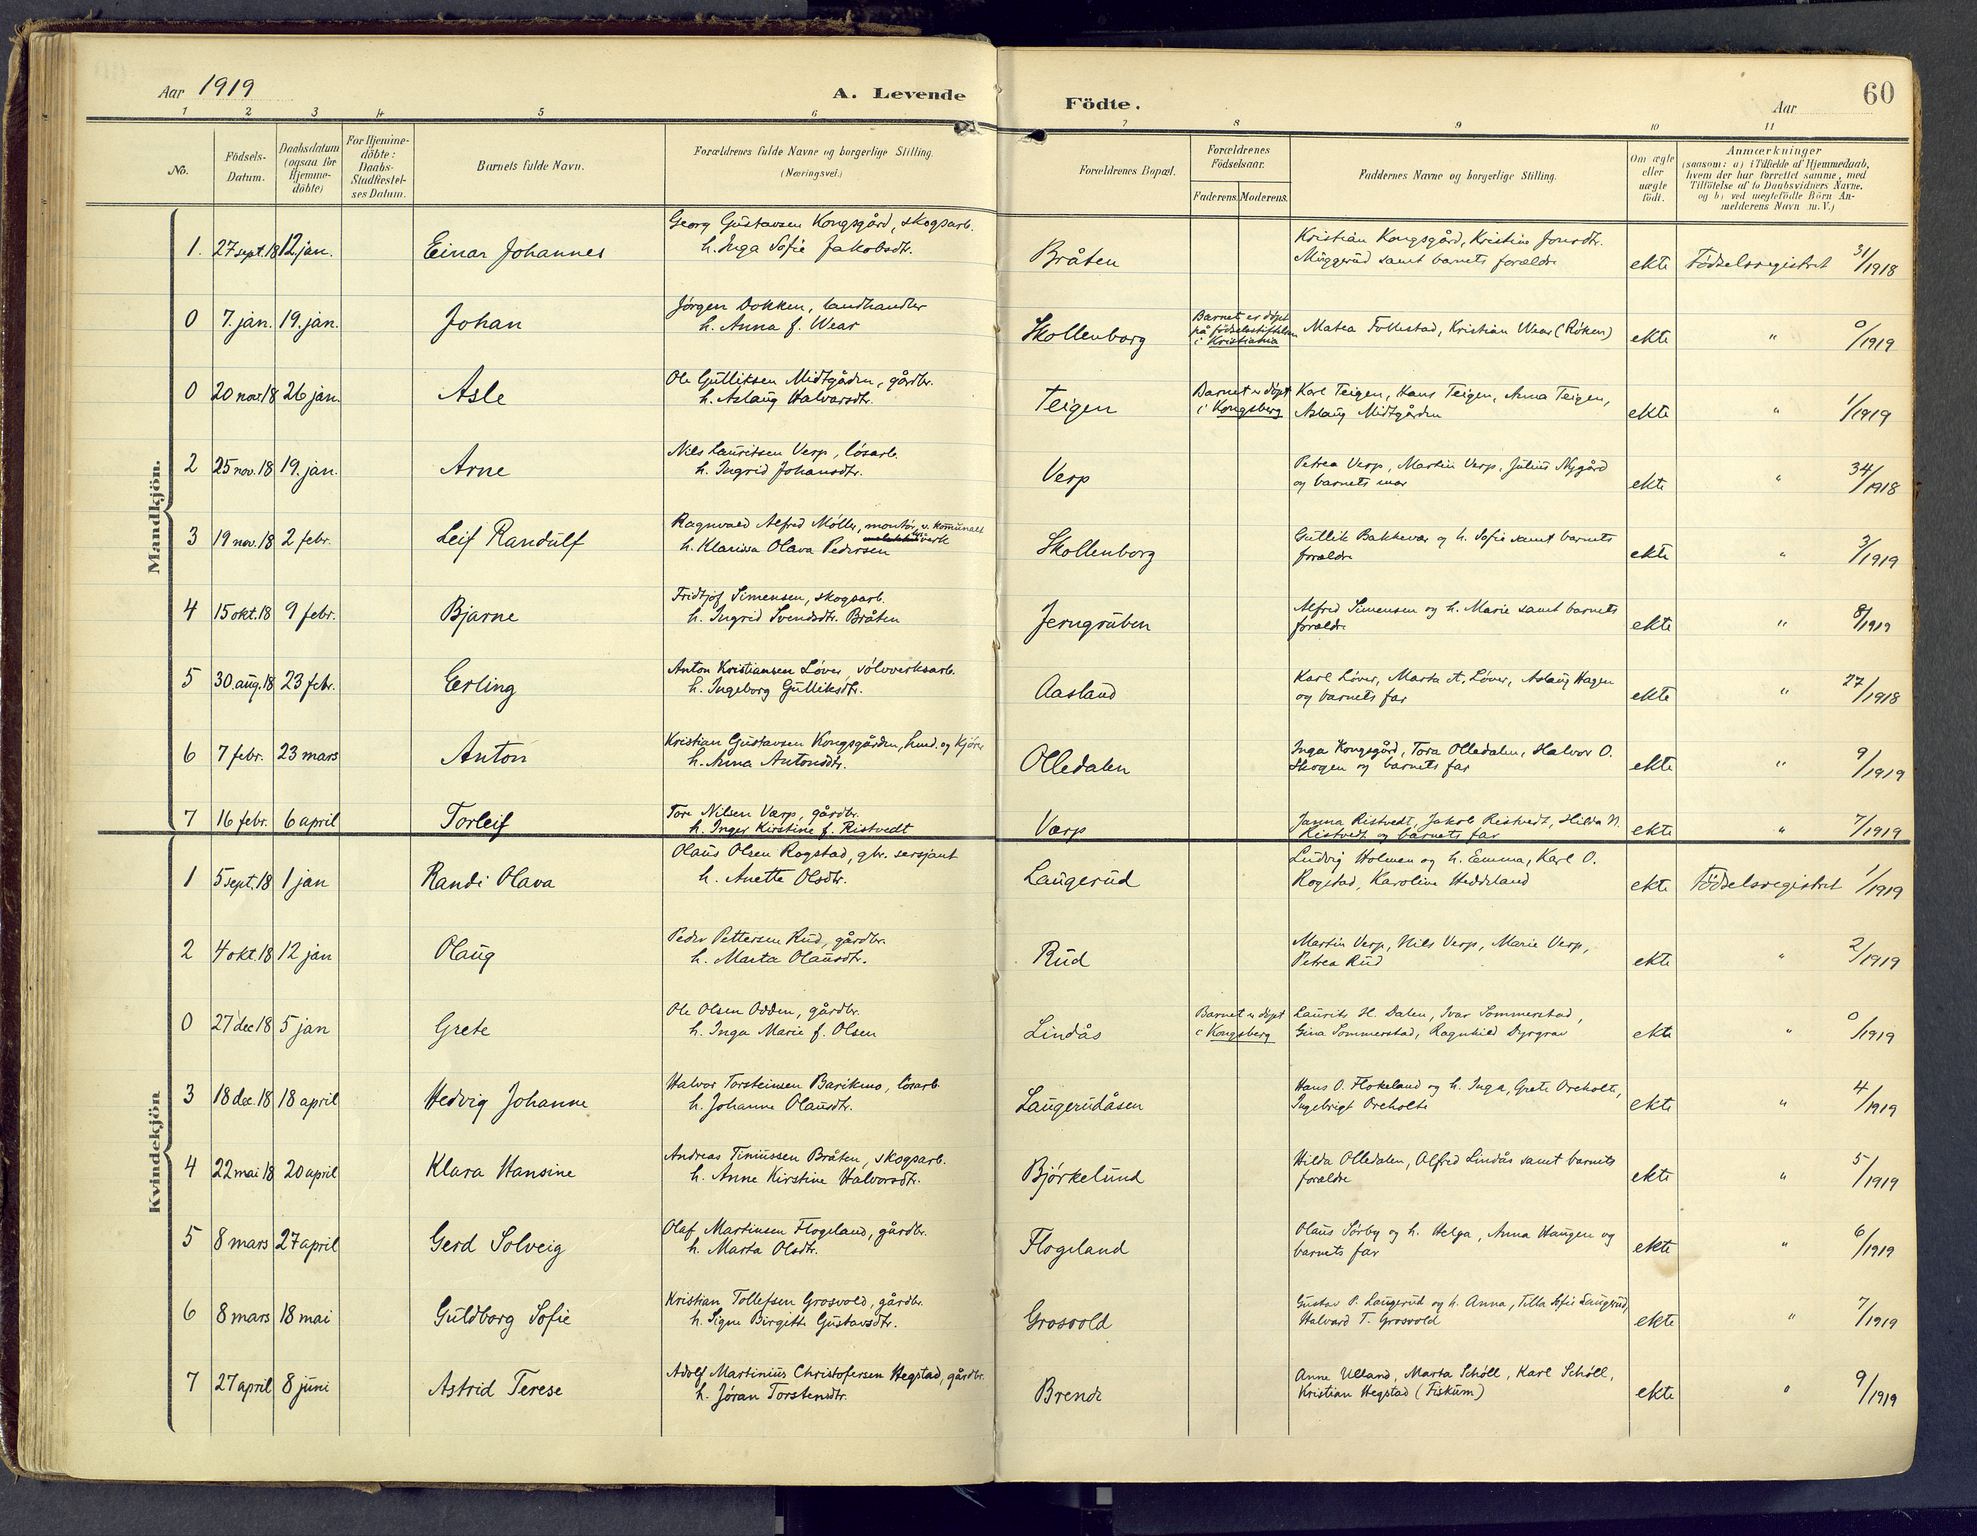 Aar 1919
A. Levende Födte.
Aar
60
1 2 3 4 5 6 7 8 9 10 11
No.
Födsels-Datum.
Daabsdatum (ogsaa for Hjemmedöbte)
For Hjemmedöbte: Daabs-Stadfæstelses Datum.
Barnets fulde Navn.
Forældrenes fulde Navne og borgerlige Stilling. (Næringsvei.)
Forældrenes Bopæl.
Forældrenes Födselsaar.
Faderens. Moderens.
Faddernes Navne og borgerlige Stilling.
Om ægte eller uægte födt.
Anmærkninger (saasom: a) i Tilfælde af Hjemmedaab, hvem der har forrettet samme, med Tilföielse af to Daabsvidners Navne, og b) ved uægtefödte Börn Anmelderens Navn m. V.)
Mandkjön.
1. 27 sept. 18 12 jan. Einar Johannes Georg Gustavsen Kongsgård, skogsarb. h. Inga Sofie Jakobsdt. Bråten Kristian Kongsgård, Kristine Jonsdtr. Muggerud samt barnets forældre ekte Fødselsregistret 31/1918
0 7. jan. 19. jan. Johan Jørgen Dokken, landhandler h. Anna f. Wear Skollenborg Barnet er døpt på fødselsstiftelsen i Kristiania Matea Follestad, Kristian Wear (Røken) ekte " 0/1919
0 20 nov. 18 26 jan. Asle Ole Gulliksen Midtgården, gårdbr. h. Aslaug Halvorsdtr. Teigen Barnet er døpt i Kongsberg Karl Teigen, Hans Teigen, Anna Teigen, Aslaug Midtgården ekte " 1/1919
2 25 nov. 18 19. jan. Arne Nils Lauritsen Verp, løsarb. h. Ingrid Johansdtr. Verp Petrea Verp, Martin Verp, Julius Nygård og barnets mor ekte " 34/1918
3 19 nov. 18 2 febr. Leif Randulf Ragnvald Alfred Møller, montør v. komunalt verk h. Klarissa Olava Pedersen Skollenborg Gullik Bakkevær og h. Sofie samt barnets forældre ekte " 3/1919
4 15 okt. 18 9 febr. Bjarne Fridtjof Simensen, skogsarb. h. Ingrid Svendsdtr. Bråten Jerngruben Alfred Simensen og h. Marie samt barnets forældre ekte " 8/1919
5 30 aug. 18 23 febr. Erling Anton Kristiansen Løver, sølvverksarb. h. Ingeborg Gulliksdtr. Aasland Karl Løver, Marta A. Løver, Aslaug Hagen og barnets far ekte " 27/1918
6 7 febr. 23 mars Anton Kristian Gustavsen Kongsgården, hmd. og kjører h. Anna Antonsdtr. Olledalen Inga Kongsgård, Tora Olledalen, Halvor O. Skogen og barnets far ekte " 9/1919
7 16 febr. 6 april Torleif Tore Nilsen Værp, gårdbr. h. Inger Kirstine f. Ristvedt Værp Janna Ristvedt, Jakob Ristvedt, Hilda N. Ristvedt og barnets far ekte " 7/1919
Kvindekjön
1 5 sept. 18 1 jan Randi Olava Olaus Olsen Rogstad, gbr. sersjant h. Anette Olsdtr. Laugerud Ludvig Holmen og h. Emma, Karl O. Rogstad, Karoline Heddeland ekte Fødselsregistret 1/1919
2 4 okt. 18 12 jan Olaug Peder Pettersen Rud, gårdbr. h. Marta Olausdtr. Rud Martin Verp, Nils Verp, Marie Verp, Petrea Rud ekte " 2/1919
0 27 dec 18 5 jan Grete Ole Olsen Odden, gårdbr. h. Inga Marie f. Olsen Lindås Barnet er døpt i Kongsberg Laurits H. Dalen, Ivar Sommerstad, Gina Sommerstad, Ragnhild Dyrgrav ekte " 0/1919
3 18 dec. 18 18 april Hedvig Johanne Halvor Torsteinsen Barikmo, løsarb. h. Johanne Olausdtr. Laugerudåsen Hans O. Flokeland og h. Inga, Grete Oreholte, Ingebrigt Oreholte ekte " 4/1919
4 22 mai 18 20 april Klara Hansine Andreas Tiniussen Bråten, skogsarb. h. Anne Kirstine Halvorsdtr. Bjørkelund Hilda Olledalen, Alfred Lindås samt barnets forældre ekte " 5/1919
5 8 mars 27 april Gerd Solveig Olaf Martinsen Flogeland, gårdbr. h. Marta Olsdtr. Flogeland Olaus Sørby og h. Helga, Anna Haugen og barnets far ekte " 6/1919
6 8 mars 18 mai Guldborg Sofie Kristian Tollefsen Grosvold, gårdbr. h. Signe Birgitte Gustavsdtr. Grosvold Gustav O. Laugerud og h. Anna, Tilla Sofie Laugerud, Halvard T. Grosvold ekte " 7/1919
7 27 april 8 juni Astrid Terese Adolf Martinius Christofersen Hegstad, gårdbr. h. Jøran Torstensdtr. Brende Anne Ulland, Marta Schöll, Karl Schöll, Kristian Hegstad (Fiskum) ekte " 9/1919